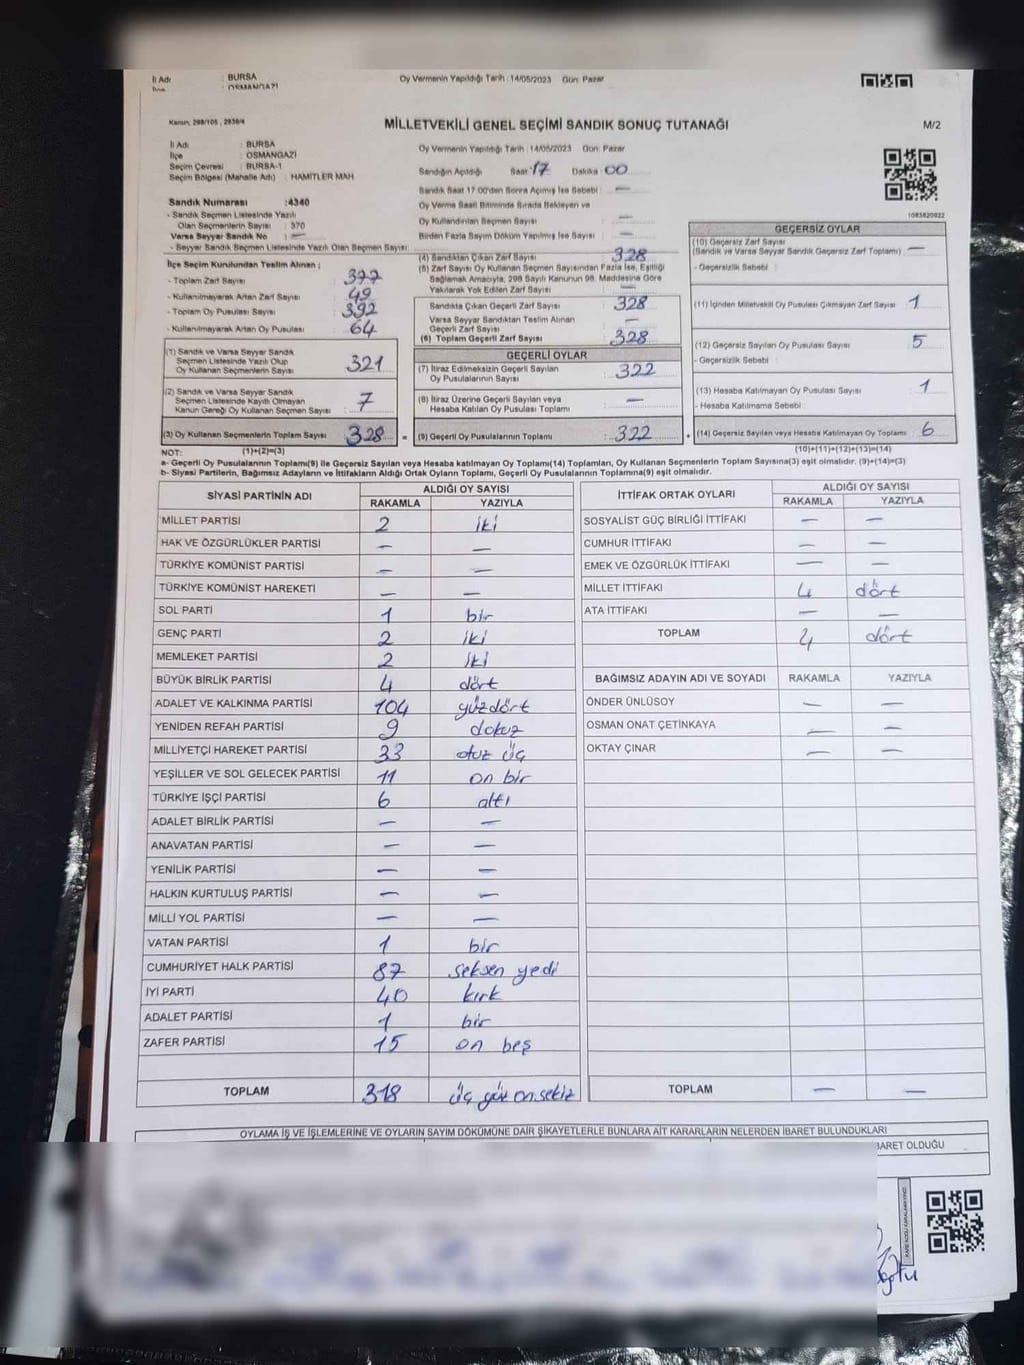 İl Adı : BURSA Oy Vermenin Yapıldığı Tarih : 14/05/2023 Gün: Pazar
OSMANGAZİ
Kanun, 298/105 , 2839/4
MİLLETVEKİLİ GENEL SEÇİMİ SANDIK SONUÇ TUTANAĞI M/2
İl Adı : BURSA Oy Vermenin Yapıldığı Tarih : 14/05/2023 Gün: Pazar
İlçe : OSMANGAZİ
Seçim Çevresi : BURSA-1 Sandığın Açıldığı Saat : 17 Dakika : 00
Seçim Bölgesi (Mahalle Adı) : HAMİTLER MAH.
Sandık Saat 17:00'den Sonra Açılmış İse Sebebi : —
Sandık Numarası :4340 Oy Verme Saati Bitiminde Sırada Bekleyen ve
- Sandık Seçmen Listesinde Yazılı
Olan Seçmenlerin Sayısı : 370 Oy Kullandırılan Seçmen Sayısı : —
Varsa Seyyar Sandık No : — Birden Fazla Sayım Döküm Yapılmış İse Sayısı : —
- Seyyar Sandık Seçmen Listesinde Yazılı Olan Seçmen Sayısı:
1083820922
İlçe Seçim Kurulundan Teslim Alınan ;
- Toplam Zarf Sayısı : 377
- Kullanılmayarak Artan Zarf Sayısı : 49
- Toplam Oy Pusulası : 392
- Kullanılmayarak Artan Oy Pusulası : 64
(1) Sandık ve Varsa Seyyar Sandık
Seçmen Listesinde Yazılı Olup
Oy Kullanan Seçmenlerin Sayısı : 321
(2) Sandık ve Varsa Seyyar Sandık
Seçmen Listesinde Kayıtlı Olmayan
Kanun Gereği Oy Kullanan Seçmen Sayısı : 7
(3) Oy Kullanan Seçmenlerin Toplam Sayısı : 328 =
(4) Sandıktan Çıkan Zarf Sayısı : 328
(5) Zarf Sayısı Oy Kullanan Seçmen Sayısından Fazla İse, Eşitliği
Sağlamak Amacıyla, 298 Sayılı Kanunun 98. Maddesine Göre
Yakılarak Yok Edilen Zarf Sayısı : —
Sandıkta Çıkan Geçerli Zarf Sayısı : 328
Varsa Seyyar Sandıktan Teslim Alınan
Geçerli Zarf Sayısı : —
(6) Toplam Geçerli Zarf Sayısı : 328
GEÇERLİ OYLAR
(7) İtiraz Edilmeksizin Geçerli Sayılan
Oy Pusulalarının Sayısı : 322
(8) İtiraz Üzerine Geçerli Sayılan veya
Hesaba Katılan Oy Pusulası Toplamı : —
(9) Geçerli Oy Pusulalarının Toplamı : 322 +
GEÇERSİZ OYLAR
(10) Geçersiz Zarf Sayısı
(Sandık ve Varsa Seyyar Sandık Geçersiz Zarf Toplamı) : —
- Geçersizlik Sebebi :
(11) İçinden Milletvekili Oy Pusulası Çıkmayan Zarf Sayısı : 1
(12) Geçersiz Sayılan Oy Pusulası Sayısı : 5
- Geçersizlik Sebebi :
(13) Hesaba Katılmayan Oy Pusulası Sayısı : 1
- Hesaba Katılmama Sebebi :
(14) Geçersiz Sayılan veya Hesaba Katılmayan Oy Toplamı : 6
NOT: (1)+(2)=(3) (10)+(11)+(12)+(13)=(14)
a- Geçerli Oy Pusulalarının Toplamı(9) ile Geçersiz Sayılan veya Hesaba katılmayan Oy Toplamı(14) Toplamları, Oy Kullanan Seçmenlerin Toplam Sayısına(3) eşit olmalıdır. (9)+(14)=(3)
b- Siyasi Partilerin, Bağımsız Adayların ve İttifakların Aldığı Ortak Oyların Toplamı, Geçerli Oy Pusulalarının Toplamına(9) eşit olmalıdır.
SİYASİ PARTİNİN ADI ALDIĞI OY SAYISI
RAKAMLA YAZIYLA
MİLLET PARTİSİ 2 iki
HAK VE ÖZGÜRLÜKLER PARTİSİ — —
TÜRKİYE KOMÜNİST PARTİSİ — —
TÜRKİYE KOMÜNİST HAREKETİ — —
SOL PARTİ 1 bir
GENÇ PARTİ 2 iki
MEMLEKET PARTİSİ 2 iki
BÜYÜK BİRLİK PARTİSİ 4 dört
ADALET VE KALKINMA PARTİSİ 104 yüzdört
YENİDEN REFAH PARTİSİ 9 dokuz
MİLLİYETÇİ HAREKET PARTİSİ 33 otuz üç
YEŞİLLER VE SOL GELECEK PARTİSİ 11 on bir
TÜRKİYE İŞÇİ PARTİSİ 6 altı
ADALET BİRLİK PARTİSİ — —
ANAVATAN PARTİSİ — —
YENİLİK PARTİSİ — —
HALKIN KURTULUŞ PARTİSİ — —
MİLLİ YOL PARTİSİ — —
VATAN PARTİSİ 1 bir
CUMHURİYET HALK PARTİSİ 87 seksen yedi
İYİ PARTİ 40 kırk
ADALET PARTİSİ 1 bir
ZAFER PARTİSİ 15 on beş
TOPLAM 318 üç yüz onsekiz
İTTİFAK ORTAK OYLARI ALDIĞI OY SAYISI
RAKAMLA YAZIYLA
SOSYALİST GÜÇ BİRLİĞİ İTTİFAKI — —
CUMHUR İTTİFAKI — —
EMEK VE ÖZGÜRLÜK İTTİFAKI — —
MİLLET İTTİFAKI 4 dört
ATA İTTİFAKI — —
TOPLAM 4 dört
BAĞIMSIZ ADAYIN ADI VE SOYADI RAKAMLA YAZIYLA
ÖNDER ÜNLÜSOY — —
OSMAN ONAT ÇETİNKAYA — —
OKTAY ÇINAR — —
TOPLAM — —
OYLAMA İŞ VE İŞLEMLERİNE VE OYLARIN SAYIM DÖKÜMÜNE DAİR ŞİKAYETLERLE BUNLARA AİT KARARLARIN NELERDEN İBARET BULUNDUKLARI
BARET OLDUĞU